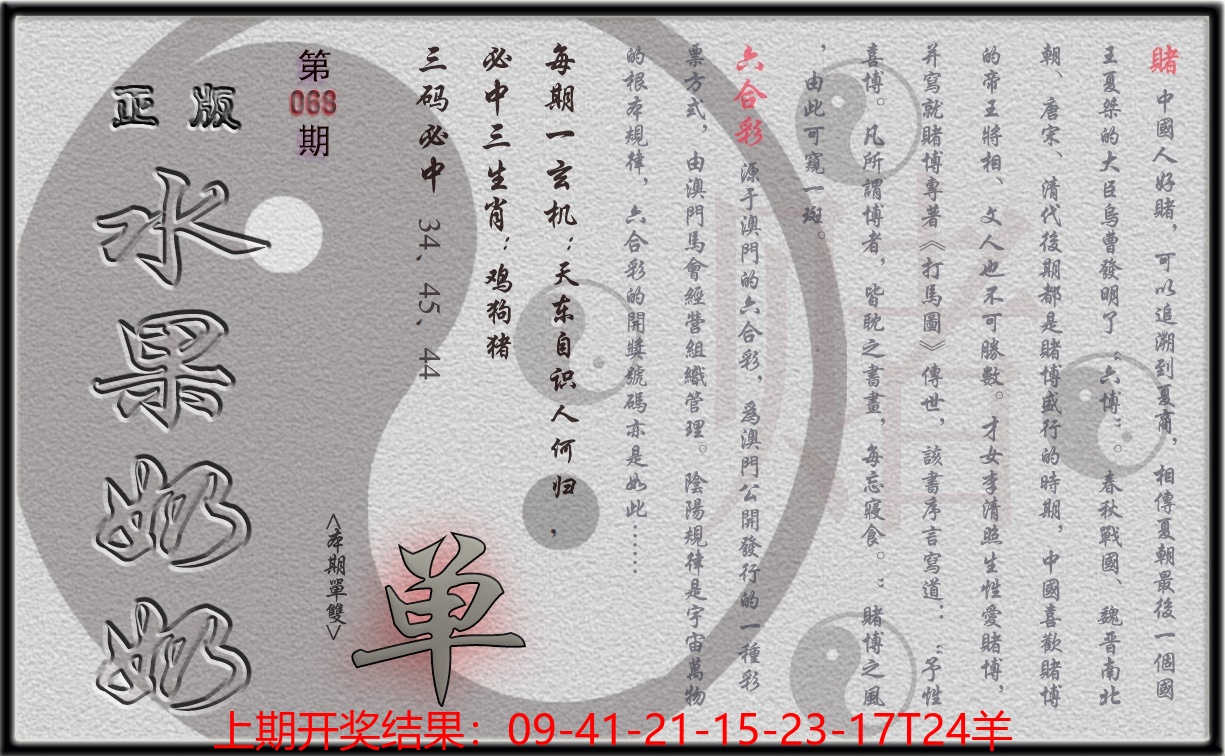 賭 中國人好賭，可以追溯到夏商，相傳夏朝最後一個國
王夏桀的大臣烏曹發明了“六博”。春秋戰國、魏晋南北
朝、唐宋、清代後期都是賭博盛行的時期，中國喜歡賭博
的帝王將相、文人也不可勝數。才女李清照生性愛賭博，
并寫就賭博專著《打馬圖》傳世，該書序言寫道：“予性
喜博。凡所謂博者，皆耽之書畫，每忘寢食。”賭博之風
，由此可窺一斑。
六合彩 源于澳門的六合彩，爲澳門公開發行的一種彩
票方式，由澳門馬會經營組織管理。陰陽規律是宇宙萬物
的根本規律，六合彩的開獎號碼亦是如此……
每期一玄机：天东自识人何归，
必中三生肖：鸡狗猪
三码必中 34、45、44
第
068
期
<本期單雙>
单
正版
水果奶奶
上期开奖结果：09-41-21-15-23-17T24羊